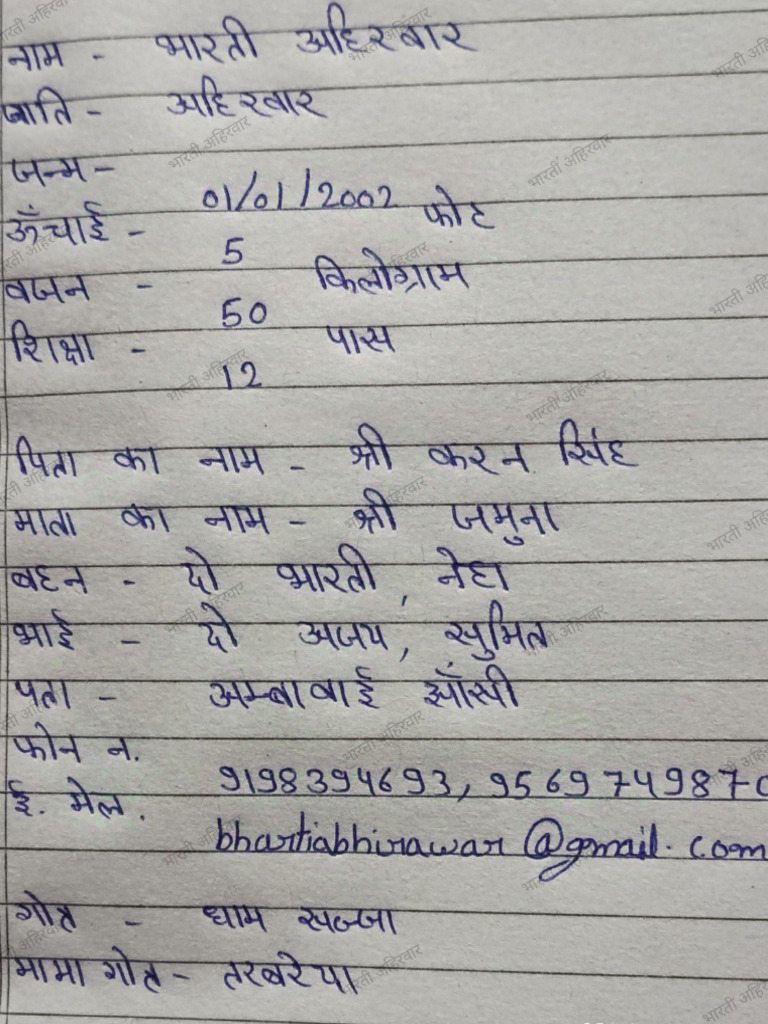 नाम - भारती अहिरवार
जाति - अहिरवार
जन्म - 01/01/2002
ऊँचाई - 5 फीट
वजन - 50 किलोग्राम
शिक्षा - 12 पास
पिता का नाम - श्री करन सिंह
माता का नाम - श्री जमुना
बहन - दो भारती, नेहा
भाई - दो अजय, सुमित
पता - अम्बावाई झाँसी
फोन न. 9198394693, 9569749870
ई. मेल. bhartiabhirawar@gmail.com
गोत्र - धाम सज्जा
मामा गोत्र - तरवरेया